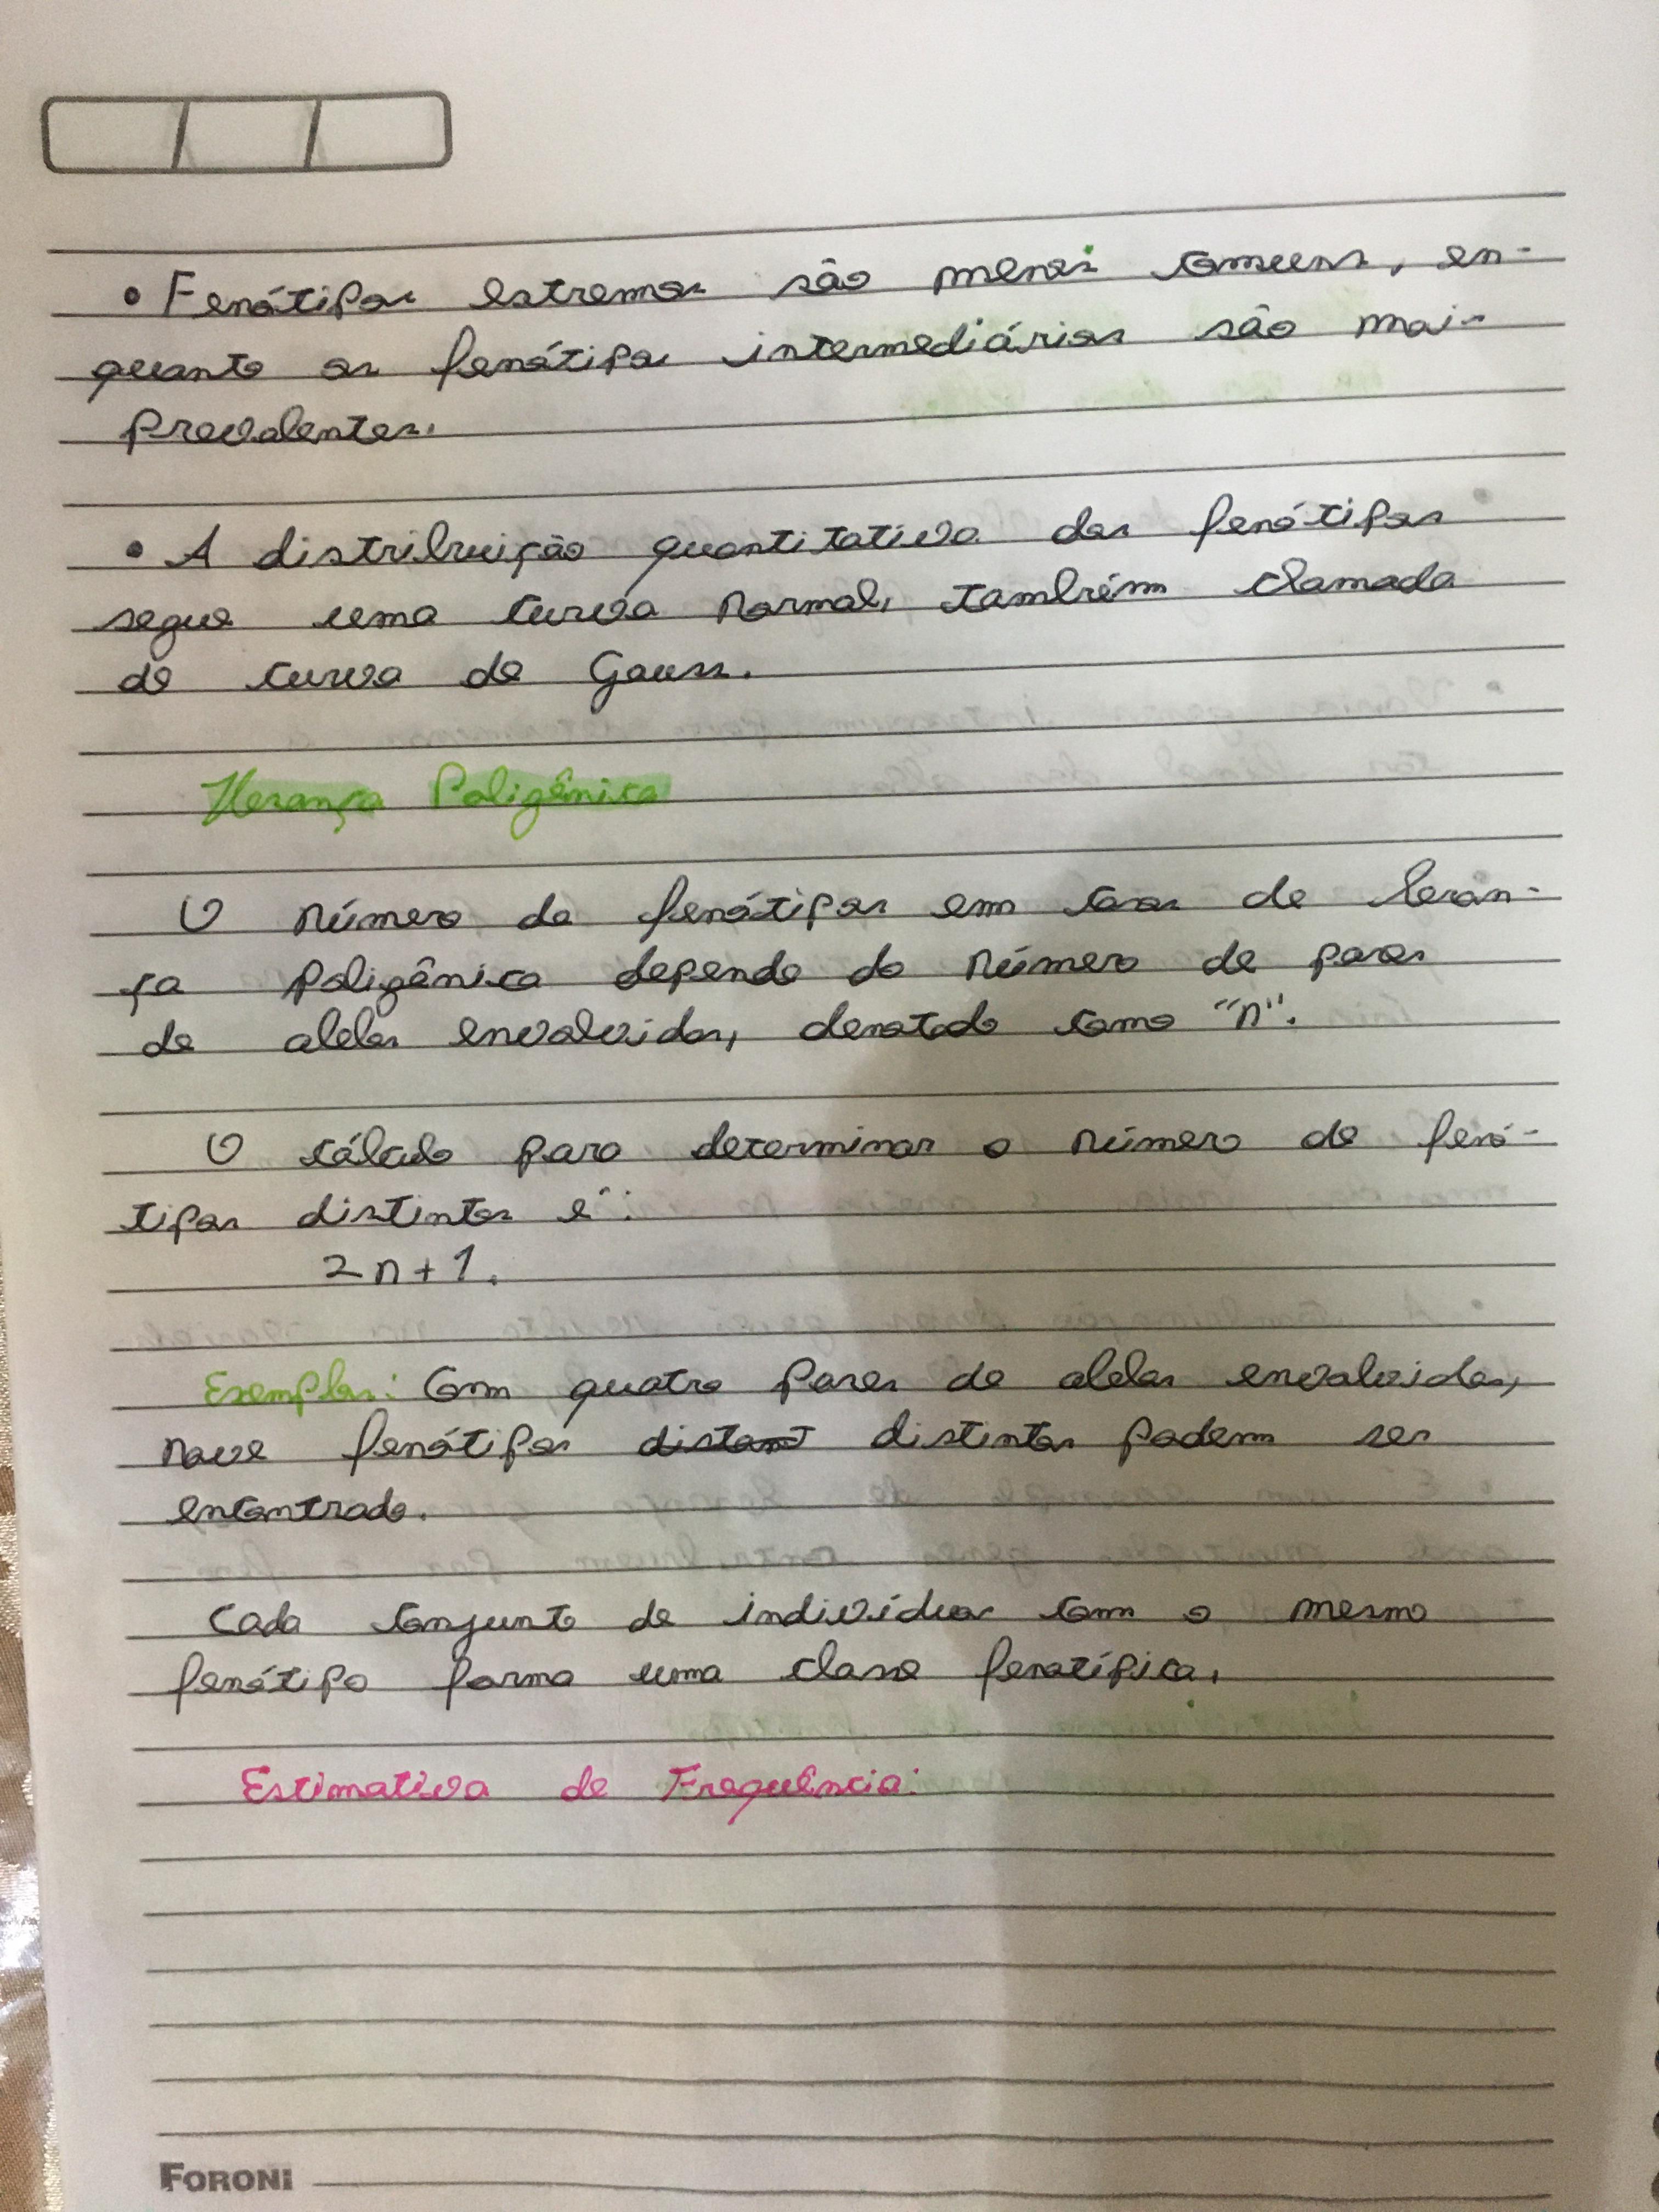 • Fenótipos estremos são menos comuns, en-
quanto os fenótipos intermediários são mai-
prevalentes.
• A distribuição quantitativa dos fenótipos
segue uma curva normal, também chamada
de curva de Gauss.
Herança Poligênica
O número de fenótipos em casos de heran-
ça poligênica depende do número de pares
de alelos envolvidos, denotado como "n".
O cálculo para determinar o número de fenó-
tipos distintos é:
2n+1.
Exemplos: Com quatro pares de alelos envolvidos,
nove fenótipos distant distintos podem ser
encontrado.
Cada conjunto de indivíduos com o mesmo
fenótipo forma uma classe fenotípica.
Estimativa de Frequência:
FORONI